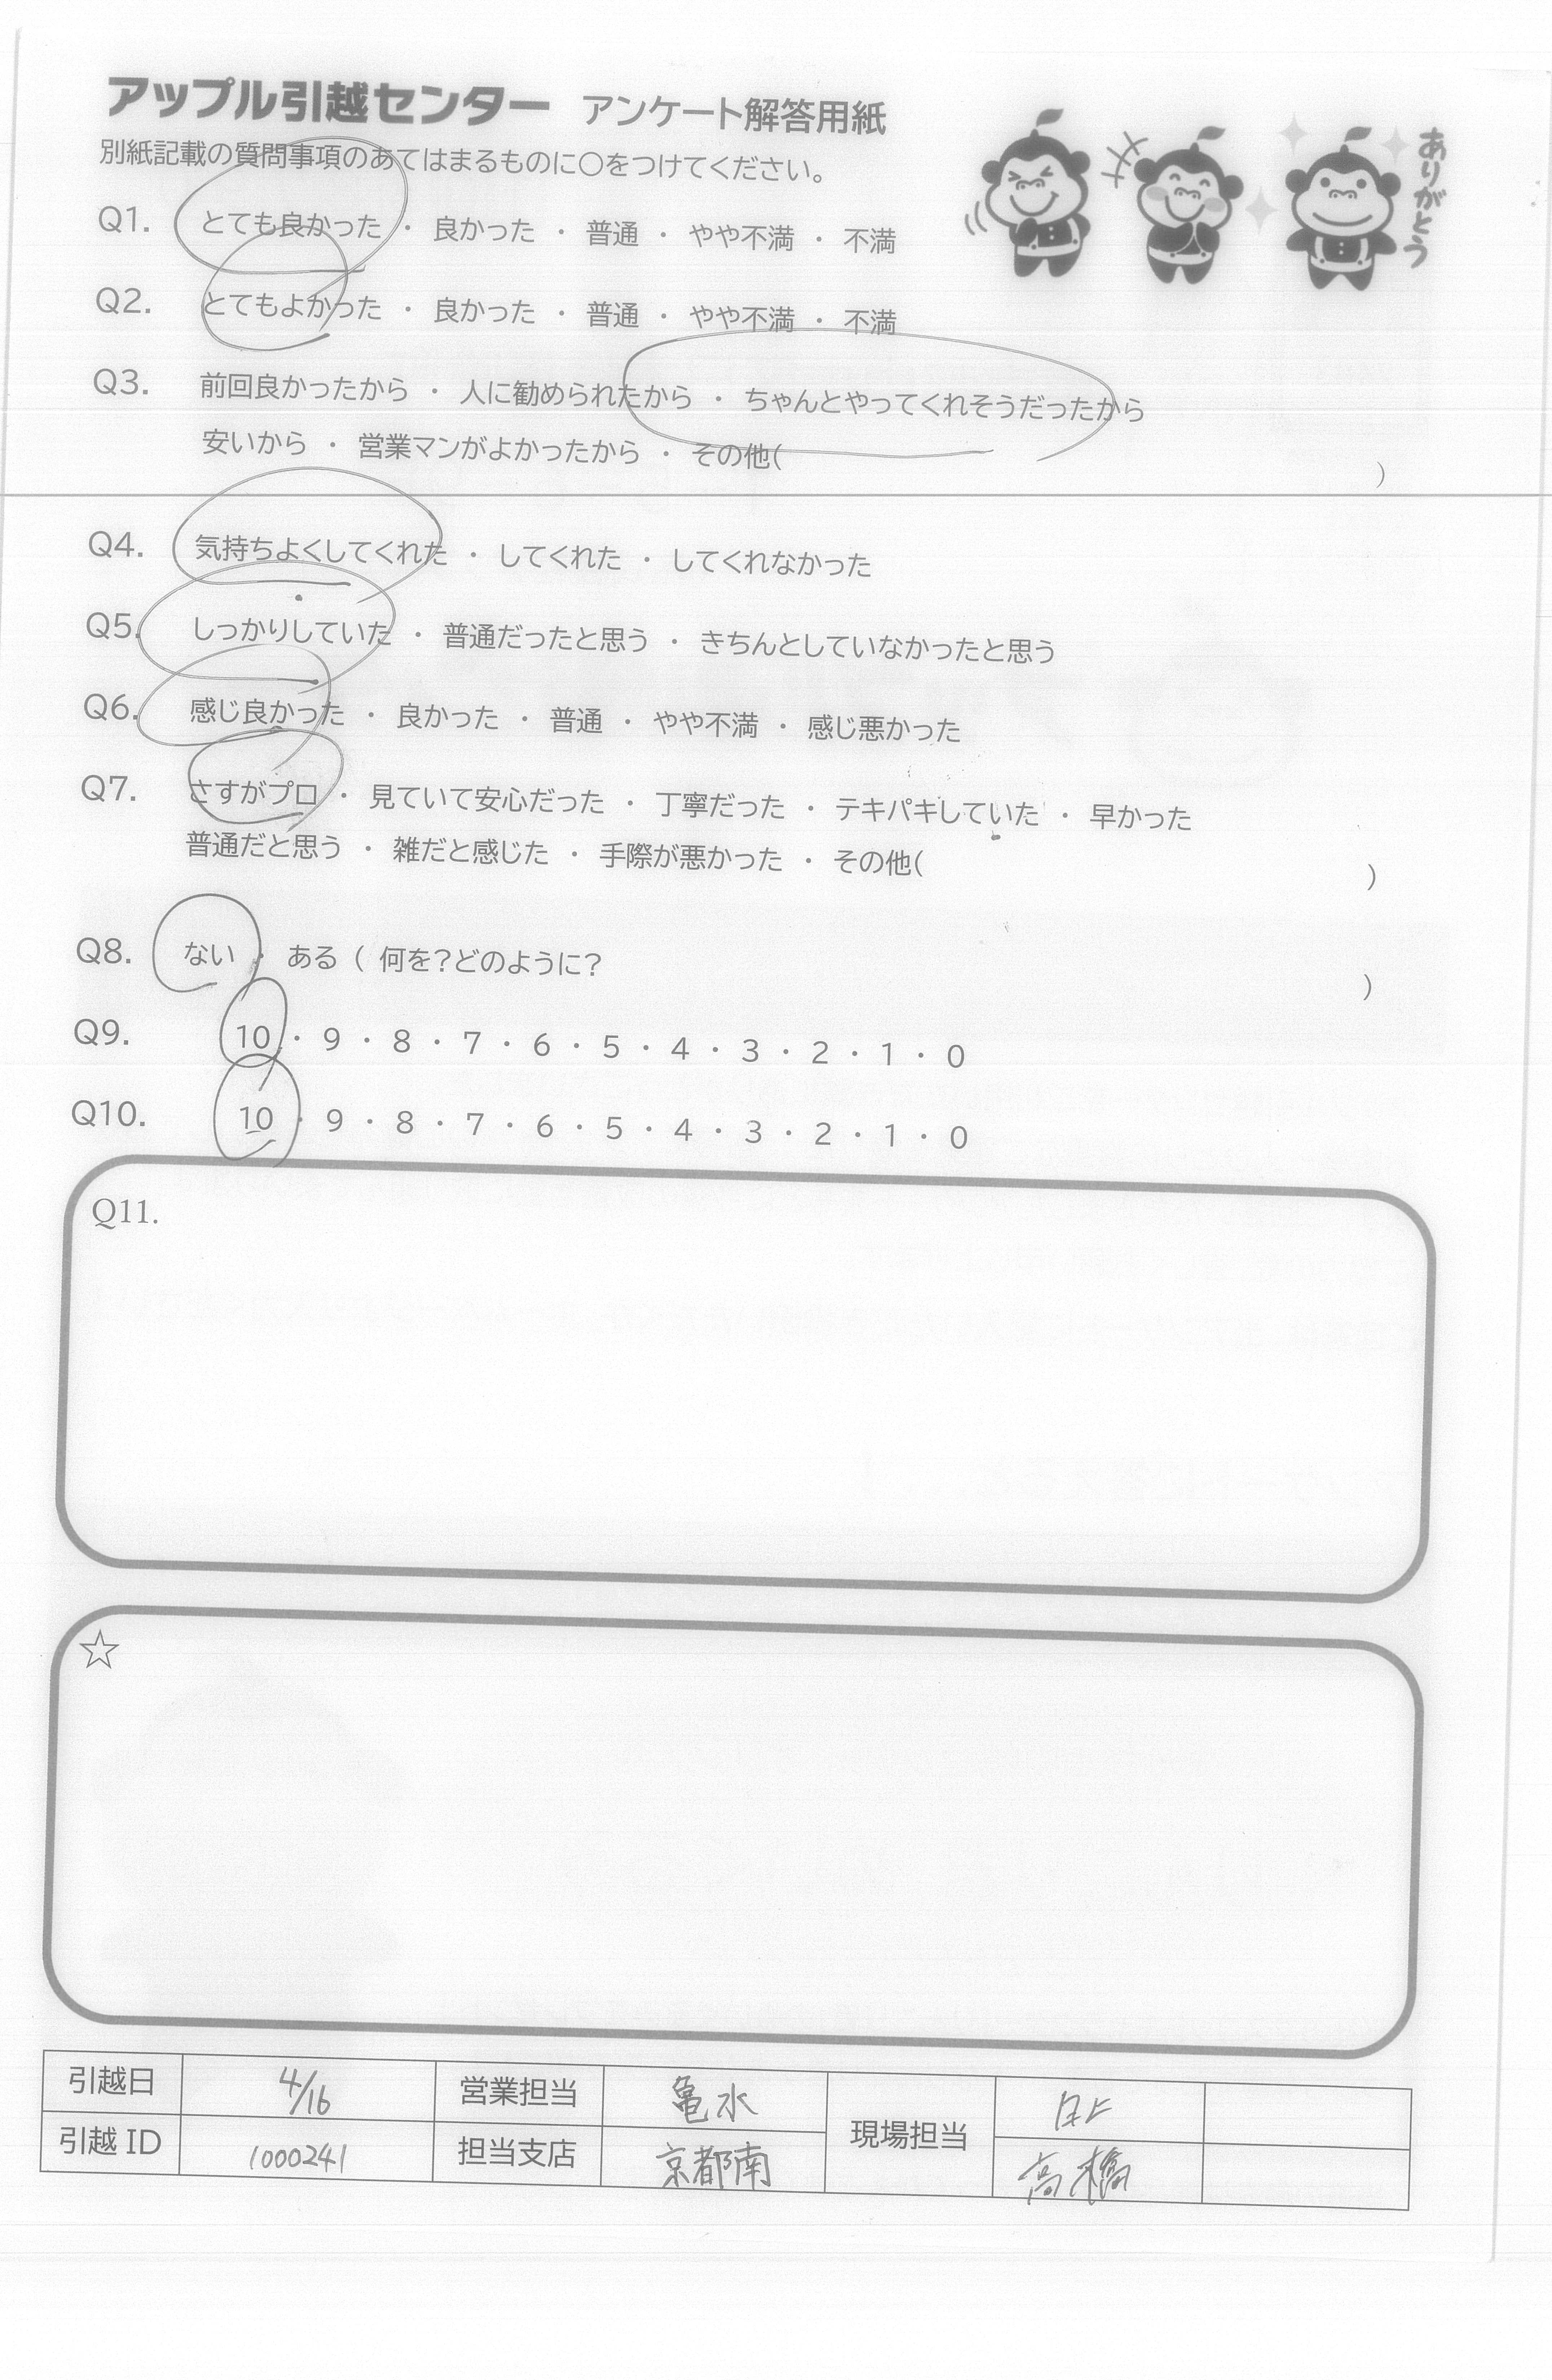 アップル引越センター アンケート解答用紙
ありがとう
別紙記載の質問事項のあてはまるものに〇をつけてください。
Q1. とても良かった ・ 良かった ・ 普通 ・ やや不満 ・ 不満
Q2. とてもよかった ・ 良かった ・ 普通 ・ やや不満 ・ 不満
Q3. 前回良かったから ・ 人に勧められたから ・ ちゃんとやってくれそうだったから
安いから ・ 営業マンがよかったから ・ その他( )
Q4. 気持ちよくしてくれた ・ してくれた ・ してくれなかった
Q5. しっかりしていた ・ 普通だったと思う ・ きちんとしていなかったと思う
Q6. 感じ良かった ・ 良かった ・ 普通 ・ やや不満 ・ 感じ悪かった
Q7. さすがプロ ・ 見ていて安心だった ・ 丁寧だった ・ テキパキしていた ・ 早かった
普通だと思う ・ 雑だと感じた ・ 手際が悪かった ・ その他( )
Q8. ない ・ ある ( 何を?どのように? )
Q9. 10 ・ 9 ・ 8 ・ 7 ・ 6 ・ 5 ・ 4 ・ 3 ・ 2 ・ 1 ・ 0
Q10. 10 ・ 9 ・ 8 ・ 7 ・ 6 ・ 5 ・ 4 ・ 3 ・ 2 ・ 1 ・ 0
Q11.
☆
引越日 4/16 営業担当 亀水 現場担当
引越 ID 1000241 担当支店 京都南 高橋